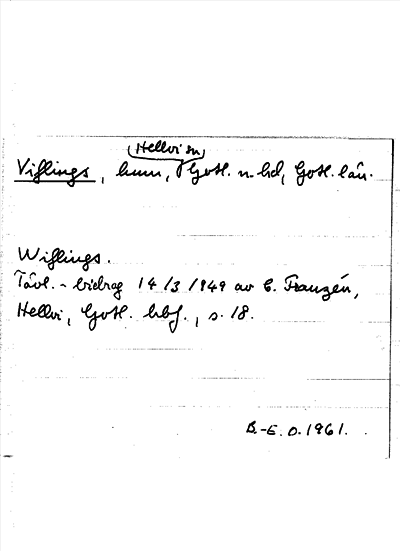 Hellvi sn
Viflings, hmn, Gotl. n. hd, Gotl. län.
Wiflings.
Tävl.-bidrag 14/3 1949 av E. Franzén,
Hellvi, Gotl. hbf., s. 18.
B.-E. O. 1961.